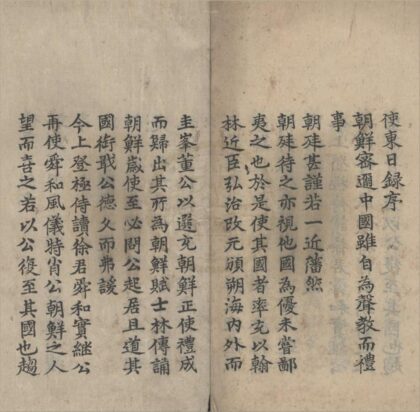 使東日録序
朝鮮密邇中國雖自為聲教而禮
事
朝廷甚謹若一近藩然
朝廷待之亦視他國為優未嘗鄙
夷之也於是使其國者率充以翰
林近臣弘治改元頒朔海内外而
圭峯董公以選充朝鮮正使禮成
而歸出其所為朝鮮賦士林傳誦
朝鮮歲使至必問公起居且道其
國街戢公德久而弗諼
今上登極侍讀徐君舜和實繼公
再使舜和風儀特肖公朝鮮之人
望而喜之若以公復至其國也趨